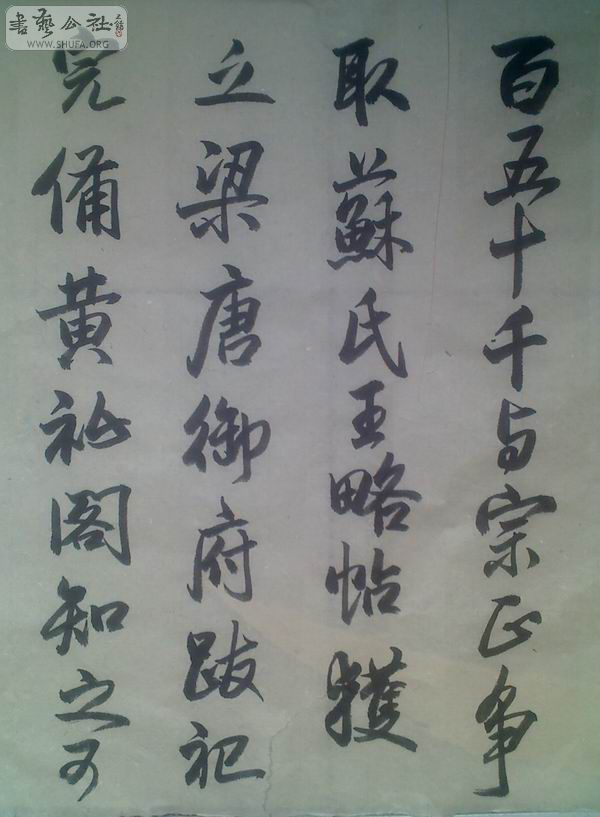 書藝公社
WWW.SHUFA.ORG
百五十千与宗正争
取蘇氏王略帖獲
之梁唐御府跋記
完備黄祕閣知之可